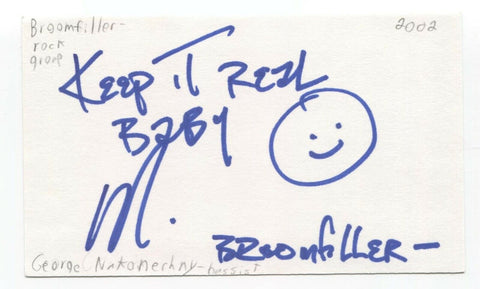 Broomfiller-
rock
group
2002
KEEP IT REAL
BABY
M.
BROOMfILLER-
George Nakonechny-bassist